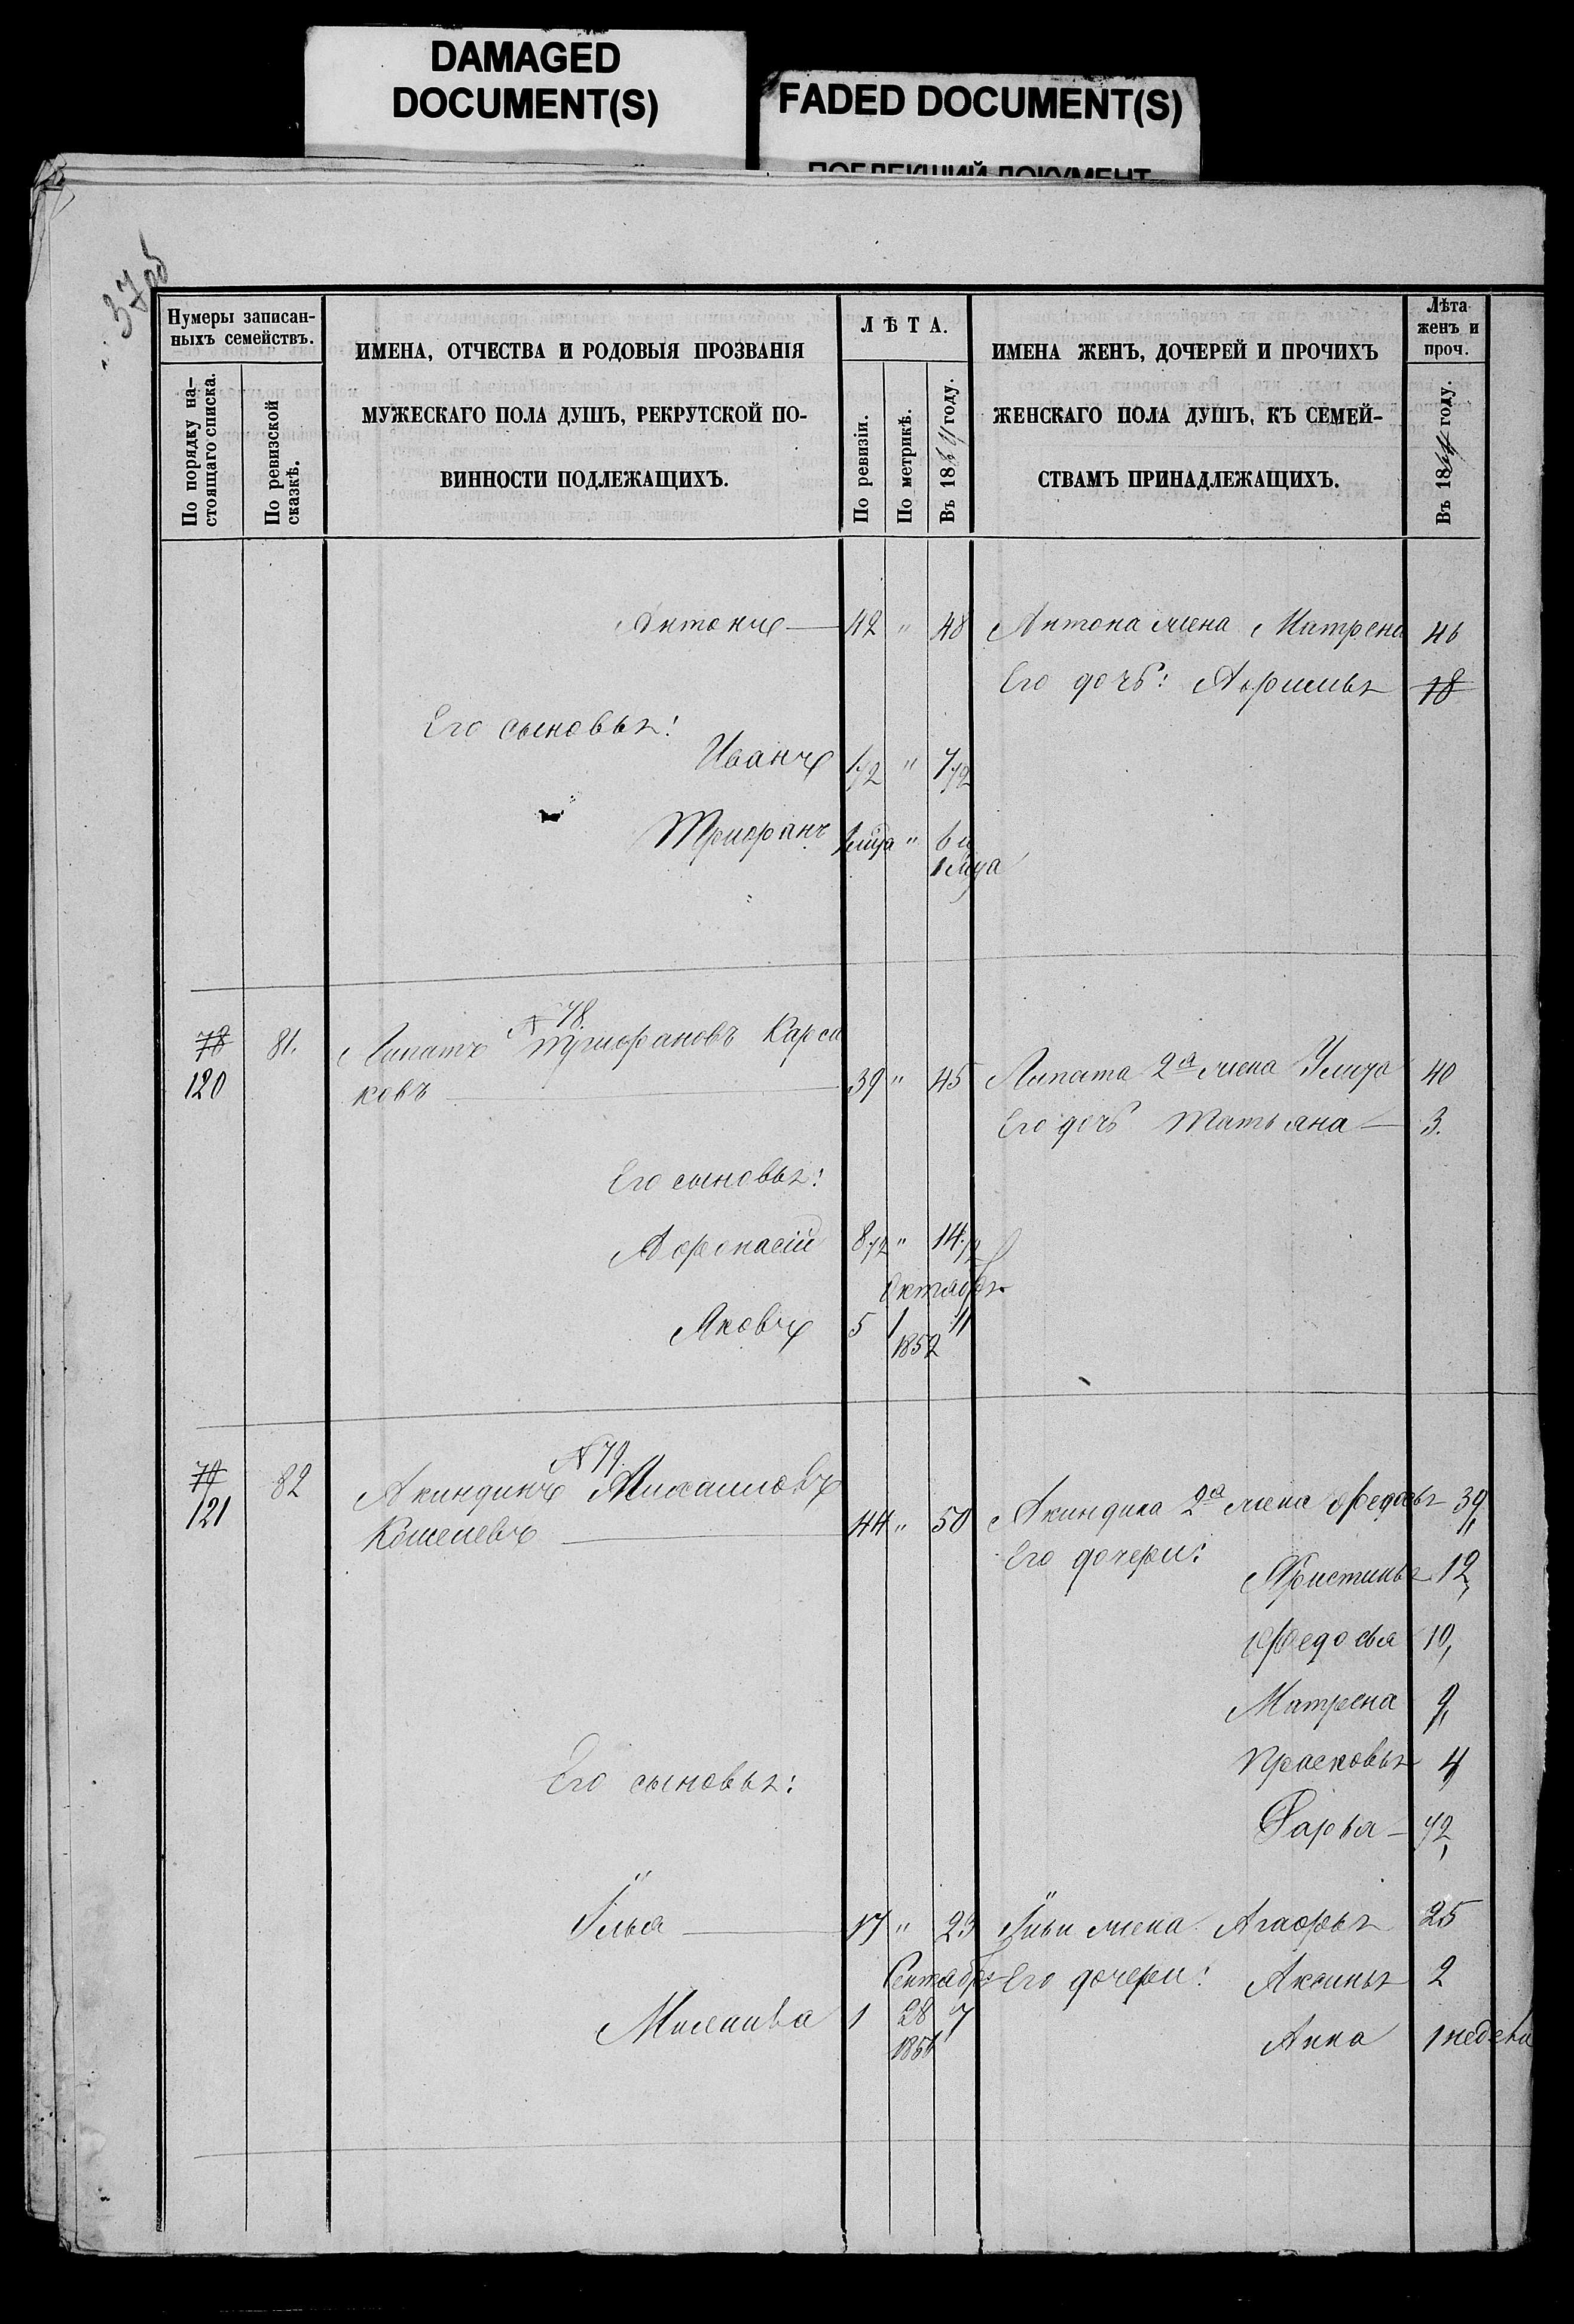 DAMAGED
DOCUMENT(S)
FADED DOCUMENT(S)
ПОБЛЕКШИЙ ДОКУМЕНТ
37об
Нумеры записан-
ныхъ семействъ.
По порядку на-
стоящаго списка.
По ревизской
сказкѣ.
ИМЕНА, ОТЧЕСТВА И РОДОВЫЯ ПРОЗВАНІЯ
МУЖЕСКАГО ПОЛА ДУШЪ, РЕКРУТСКОЙ ПО-
ВИННОСТИ ПОДЛЕЖАЩИХЪ.
ЛѢТА.
По ревизіи.
По метрикѣ.
Въ 1864 году.
ИМЕНА ЖЕНЪ, ДОЧЕРЕЙ И ПРОЧИХЪ
ЖЕНСКАГО ПОЛА ДУШЪ, КЪ СЕМЕЙ-
СТВАМЪ ПРИНАДЛЕЖАЩИХЪ.
Лѣта
женъ и
проч.
Въ 1864 году.
Антонъ — 42 " 48 Антона жена Матрена 46
Его дочь: Афимья 18
Его сыновья:
Иванъ 1 1/2 " 7 1/2
Трифанъ 1 мца " 6 и
1 мца
№ 78.
78 81. Липатъ Трифановъ Карса
120 ковъ — 39 " 45 Липата 2а жена Улита 40
Его дочь Татьяна — 3.
Его сыновья:
Афонасій 8 1/2 " 14 1/2
Октября
Яковъ 5 1 11
1852
№ 79.
79 82 Акиндинъ Михаиловъ
121 Кошелевъ — 44 " 50 Акиндина 2а жена Федосья 39,
Его дочери:
Христинья 12,
Федосья 10,
Матрена 9,
Прасковья 4
Его сыновья:
Дарья — 1/2,
Илья — 17 " 23 Ильи жена Агафья 25
Сентября Его дочери: Аксинья 2
Михаила 1 28 7
1856
Анна 1 недели